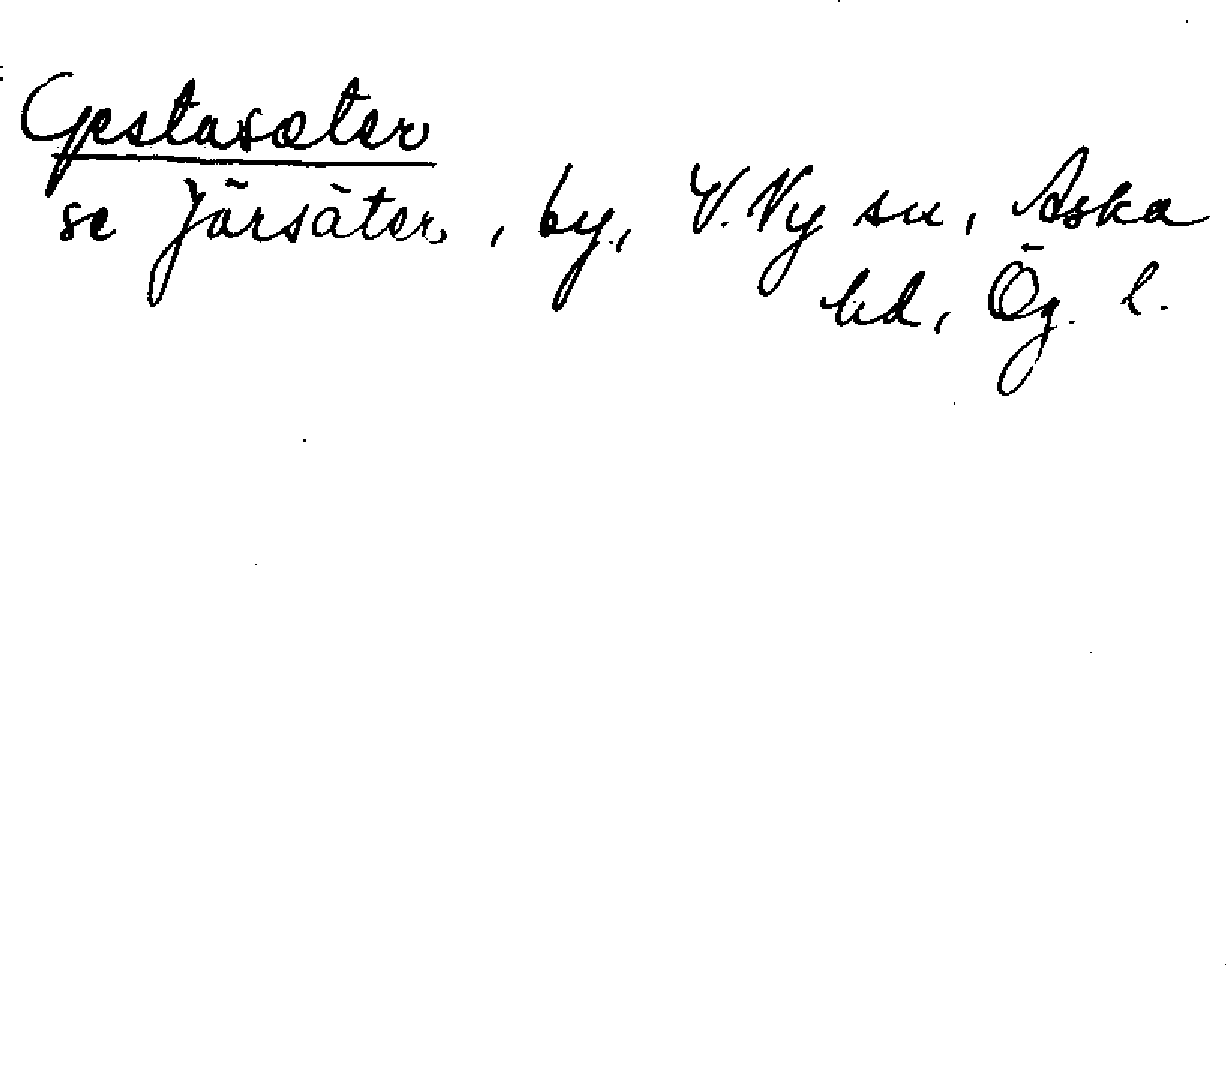 Gestasæter
se Järsäter, by, V. Ny sn, Aska
hd, Ög. l.